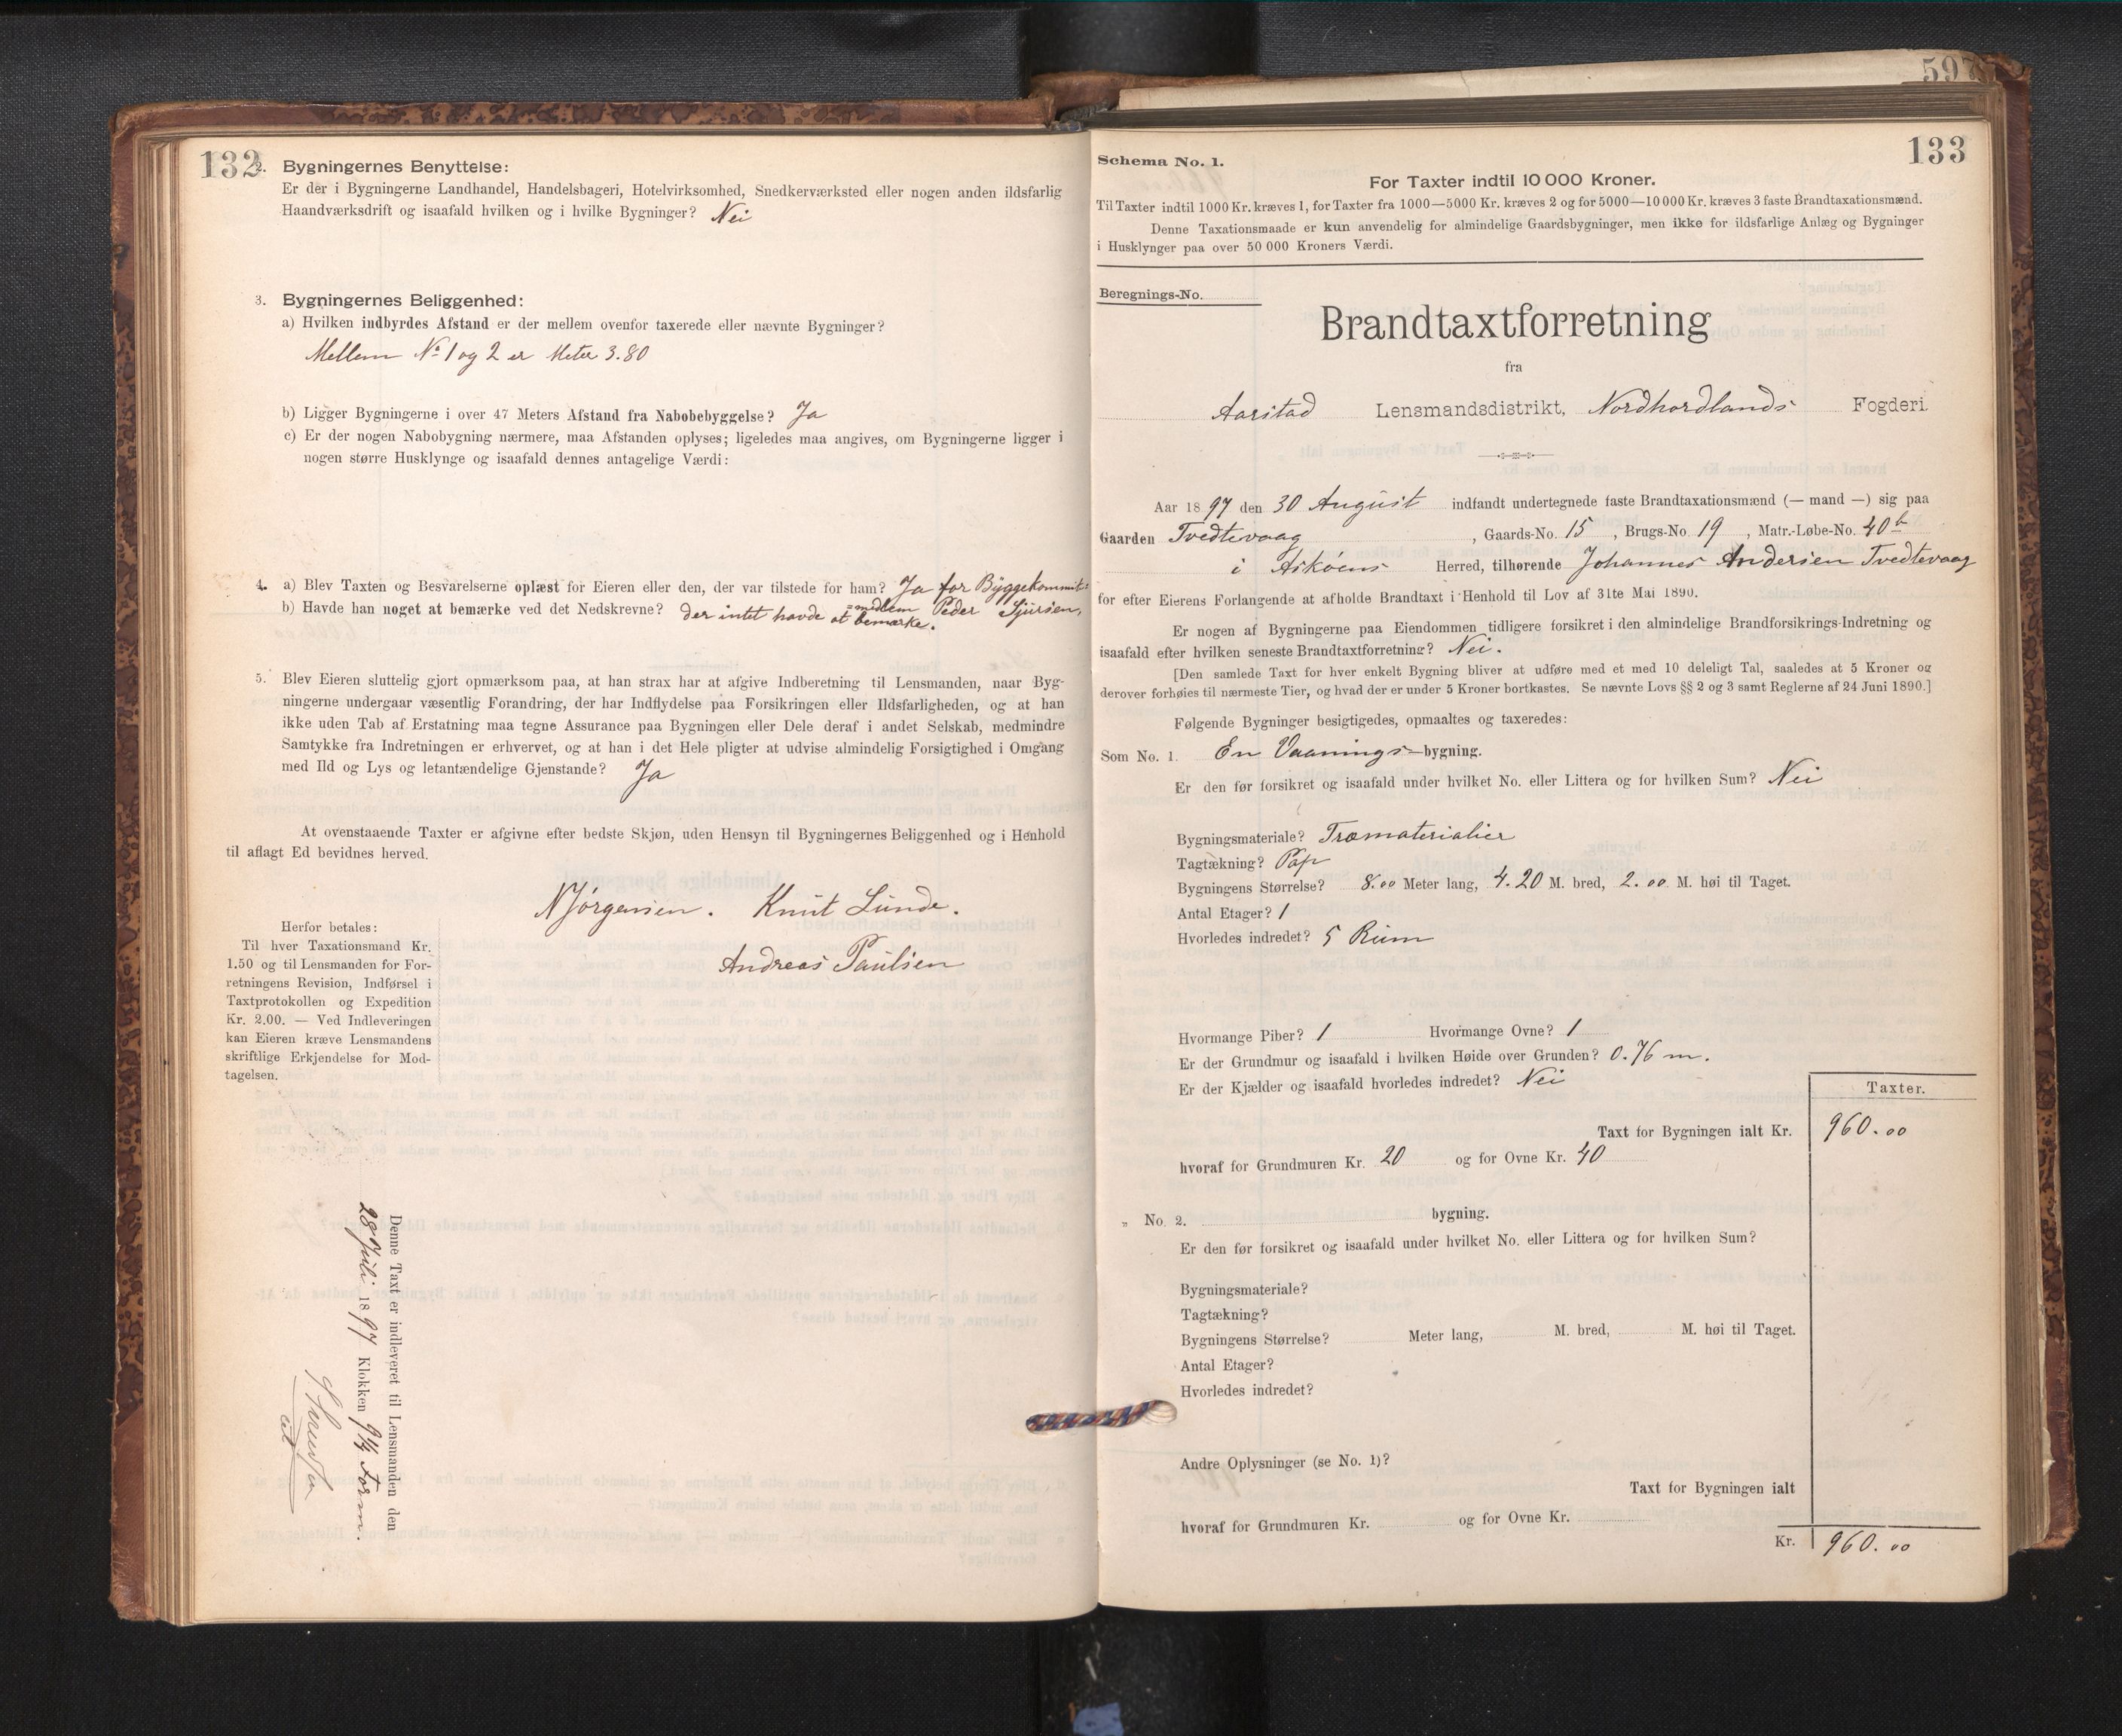 132
2. Bygningernes Benyttelse:
Er der i Bygningerne Landhandel, Handelsbageri, Hotelvirksomhed, Snedkerværksted eller nogen anden ildsfarlig
Haandværksdrift og isaafald hvilken og i hvilke Bygninger? Nei
3. Bygningernes Beliggenhed:
a) Hvilken indbyrdes Afstand er der mellem ovenfor taxerede eller nævnte Bygninger?
Mellem No 1 og 2 er Meter 3.80
b) Ligger Bygningerne i over 47 Meters Afstand fra Nabobebyggelse? Ja
c) Er der nogen Nabobygning nærmere, maa Afstanden oplyses; ligeledes maa angives, om Bygningerne ligger i
nogen større Husklynge og isaafald dennes antagelige Værdi:
4. a) Blev Taxten og Besvarelserne oplæst for Eieren eller den, der var tilstede for ham? Ja for Byggekommit-
b) Havde han noget at bemærke ved det Nedskrevne? =medlem Peder Sjursen,
der intet havde at bemærke.
5. Blev Eieren sluttelig gjort opmærksom paa, at han strax har at afgive Indberetning til Lensmanden, naar Byg-
ningerne undergaar væsentlig Forandring, der har Indflydelse paa Forsikringen eller Ildsfarligheden, og at han
ikke uden Tab af Erstatning maa tegne Assurance paa Bygningen eller Dele deraf i andet Selskab, medmindre
Samtykke fra Indretningen er erhvervet, og at han i det Hele pligter at udvise almindelig Forsigtighed i Omgang
med Ild og Lys og letantændelige Gjenstande? Ja
At ovenstaaende Taxter er afgivne efter bedste Skjøn, uden Hensyn til Bygningernes Beliggenhed og i Henhold
til aflagt Ed bevidnes herved.
N Jørgensen. Knut Lunde.
Andreas Paulsen
Herfor betales:
Til hver Taxationsmand Kr.
1.50 og til Lensmanden for For-
retningens Revision, Indførsel i
Taxtprotokollen og Expedition
Kr. 2.00. — Ved Indleveringen
kan Eieren kræve Lensmandens
skriftlige Erkjendelse for Mod-
tagelsen.
Denne Taxt er indleveret til Lensmanden den
28 Juli 1897 Klokken 9¼ Form.
597
133
Schema No. 1.
For Taxter indtil 10 000 Kroner.
Til Taxter indtil 1000 Kr. kræves 1, for Taxter fra 1000—5000 Kr. kræves 2 og for 5000—10 000 Kr. kræves 3 faste Brandtaxationsmænd.
Denne Taxationsmaade er kun anvendelig for almindelige Gaardsbygninger, men ikke for ildsfarlige Anlæg og Bygninger
i Husklynger paa over 50 000 Kroners Værdi.
Beregnings-No.
Brandtaxtforretning
fra
Aarstad Lensmandsdistrikt, Nordhordlands Fogderi.
Aar 1897 den 30 August indfandt undertegnede faste Brandtaxationsmænd (— mand —) sig paa
Gaarden Tvedtevaag, Gaards-No. 15, Brugs-No. 19, Matr.-Løbe-No. 40b
i Askøens Herred, tilhørende Johannes Andersen Tvedtevaag
for efter Eierens Forlangende at afholde Brandtaxt i Henhold til Lov af 31te Mai 1890.
Er nogen af Bygningerne paa Eiendommen tidligere forsikret i den almindelige Brandforsikrings-Indretning og
isaafald efter hvilken seneste Brandtaxtforretning? Nei.
[Den samlede Taxt for hver enkelt Bygning bliver at udføre med et med 10 deleligt Tal, saaledes at 5 Kroner og
derover forhøies til nærmeste Tier, og hvad der er under 5 Kroner bortkastes. Se nævnte Lovs §§ 2 og 3 samt Reglerne af 24 Juni 1890.]
Følgende Bygninger besigtigedes, opmaaltes og taxeredes:
Som No. 1. En Vaanings-bygning.
Er den før forsikret og isaafald under hvilket No. eller Littera og for hvilken Sum? Nei
Bygningsmateriale? Træmaterialier
Tagtækning? Pap
Bygningens Størrelse? 8.00 Meter lang, 4.20 M. bred, 2.00 M. høi til Taget.
Antal Etager? 1
Hvorledes indredet? 5 Rum
Hvormange Piber? 1 Hvormange Ovne? 1
Er der Grundmur og isaafald i hvilken Høide over Grunden? 0.76 m.
Er der Kjælder og isaafald hvorledes indredet? Nei
Taxter.
Taxt for Bygningen ialt Kr. 960.00
hvoraf for Grundmuren Kr. 20 og for Ovne Kr. 40
„ No. 2. bygning.
Er den før forsikret og isaafald under hvilket No. eller Littera og for hvilken Sum?
Bygningsmateriale?
Tagtækning?
Bygningens Størrelse? Meter lang, M. bred, M. høi til Taget.
Antal Etager?
Hvorledes indredet?
Andre Oplysninger (se No. 1)?
Taxt for Bygningen ialt
hvoraf for Grundmuren Kr. og for Ovne Kr.
Kr. 960.00